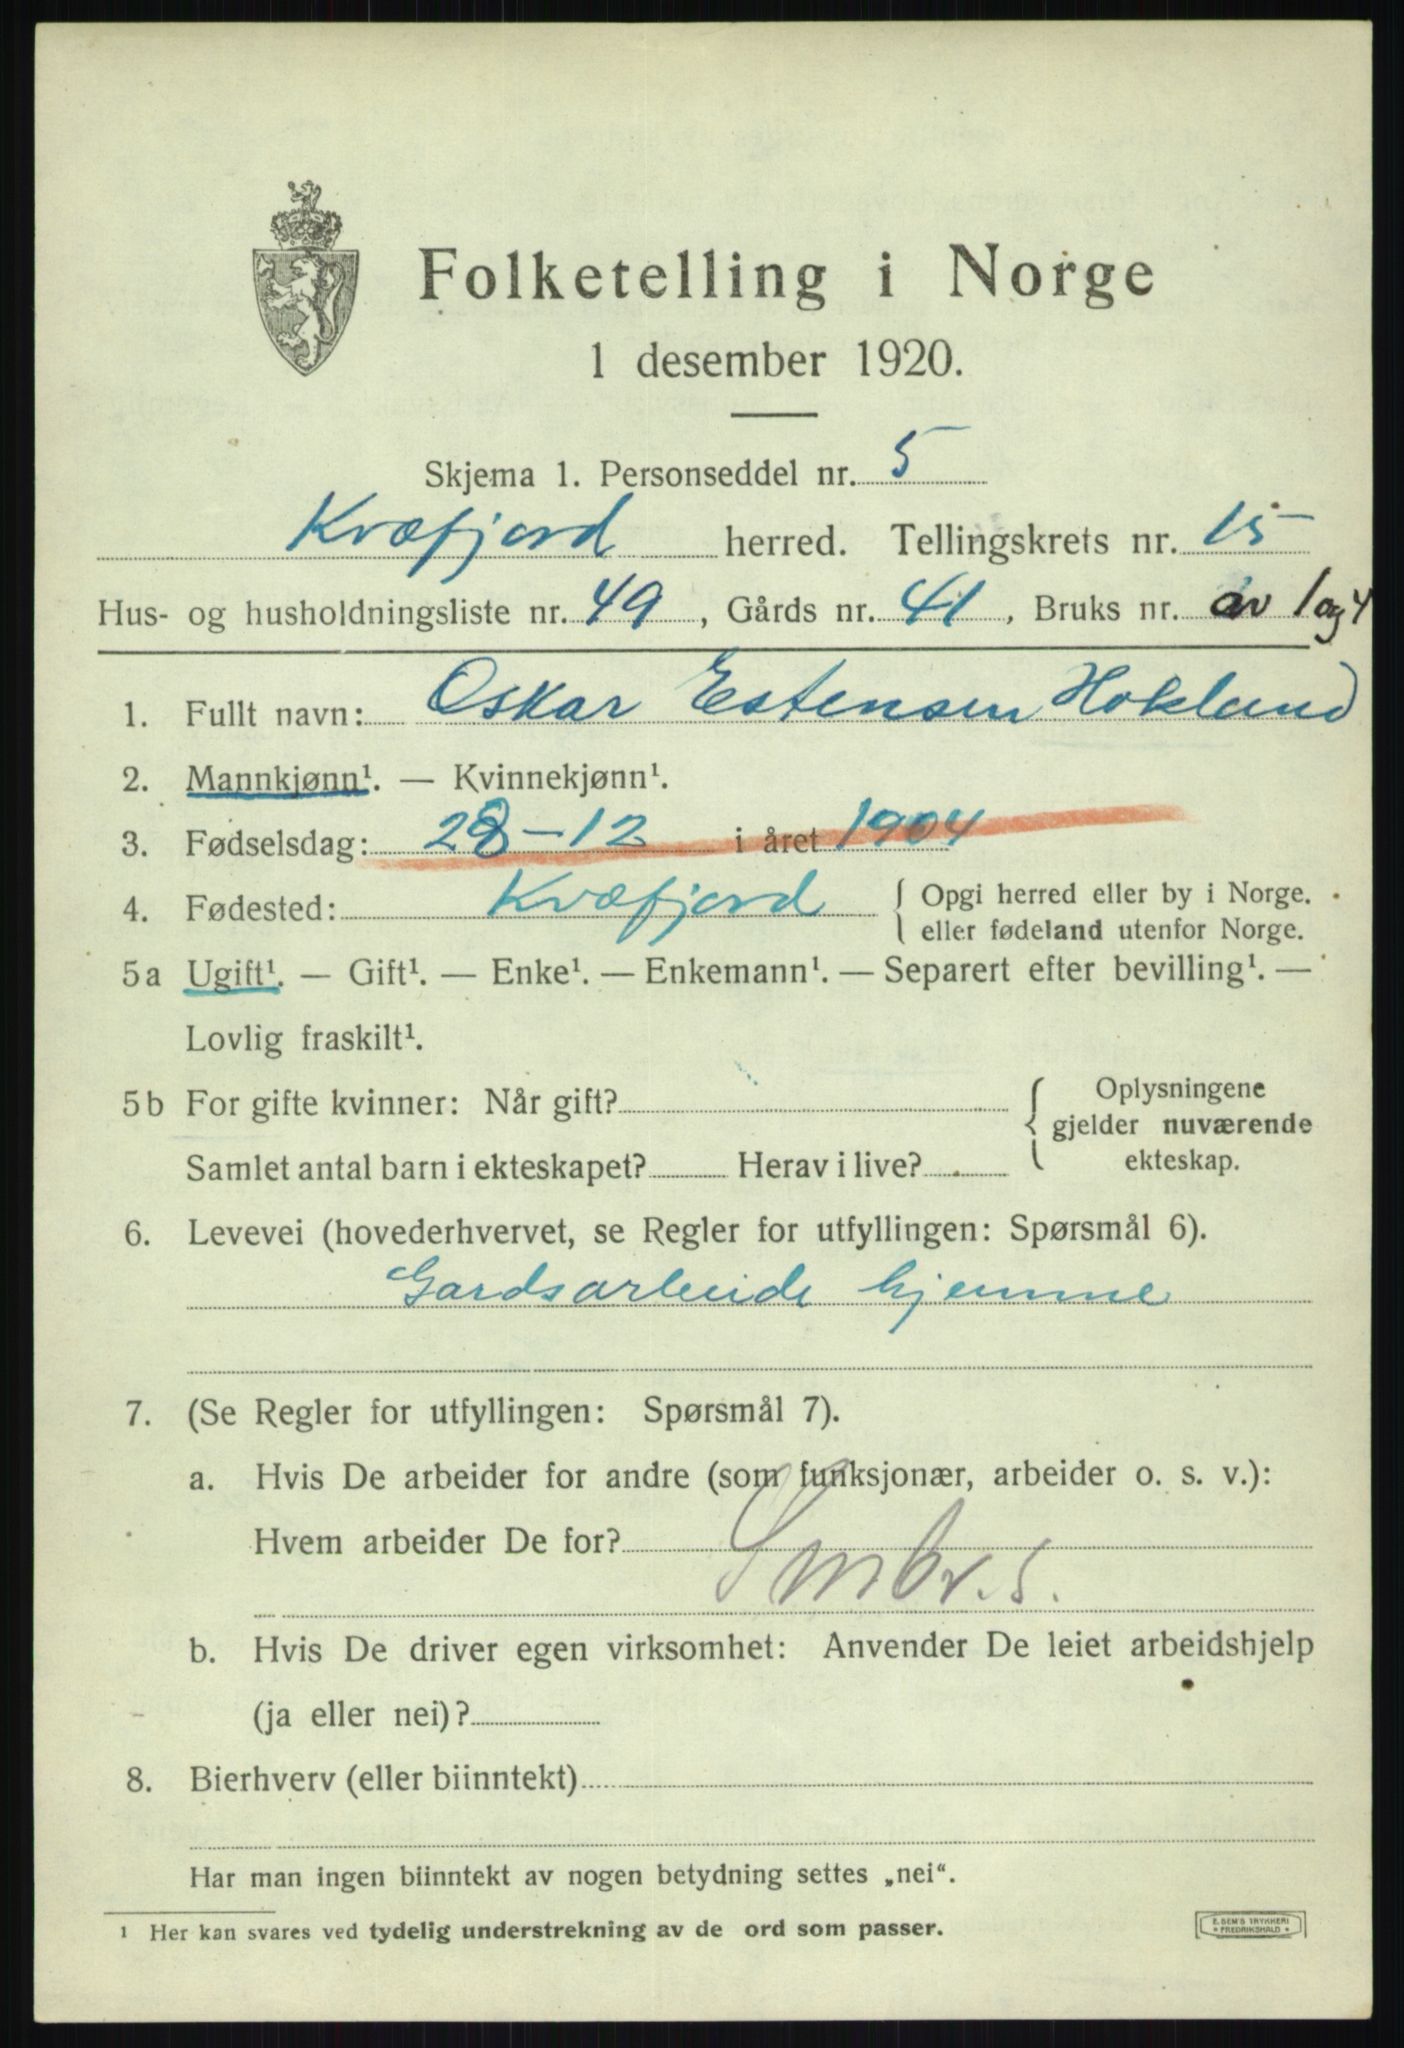 Folketelling i Norge
1 desember 1920.
Skjema 1. Personseddel nr. 5
Kvæfjord herred. Tellingskrets nr. 15
Hus- og husholdningsliste nr. 49, Gårds nr. 41, Bruks nr. av 1 og 4
1. Fullt navn: Oskar Estensen Hokland
2. Mannkjønn¹. — Kvinnekjønn¹.
3. Fødselsdag: 28-12 i året 1904
4. Fødested: Kvæfjord { Opgi herred eller by i Norge.
eller fødeland utenfor Norge.
5a Ugift¹. — Gift¹. — Enke¹. — Enkemann¹. — Separert efter bevilling¹. —
Lovlig fraskilt¹.
5b For gifte kvinner: Når gift? { Oplysningene
gjelder nuværende
ekteskap.
Samlet antal barn i ekteskapet? Herav i live?
6. Levevei (hovederhvervet, se Regler for utfyllingen: Spørsmål 6).
Gardsarbeide hjemme
7. (Se Regler for utfyllingen: Spørsmål 7).
a. Hvis De arbeider for andre (som funksjonær, arbeider o. s. v.):
Hvem arbeider De for?
Smbr. s.
b. Hvis De driver egen virksomhet: Anvender De leiet arbeidshjelp
(ja eller nei)?
8. Bierhverv (eller biinntekt)
Har man ingen biinntekt av nogen betydning settes „nei“.
¹ Her kan svares ved tydelig understrekning av de ord som passer.
E. SEM'S TRYKKERI
FREDRIKSHALD